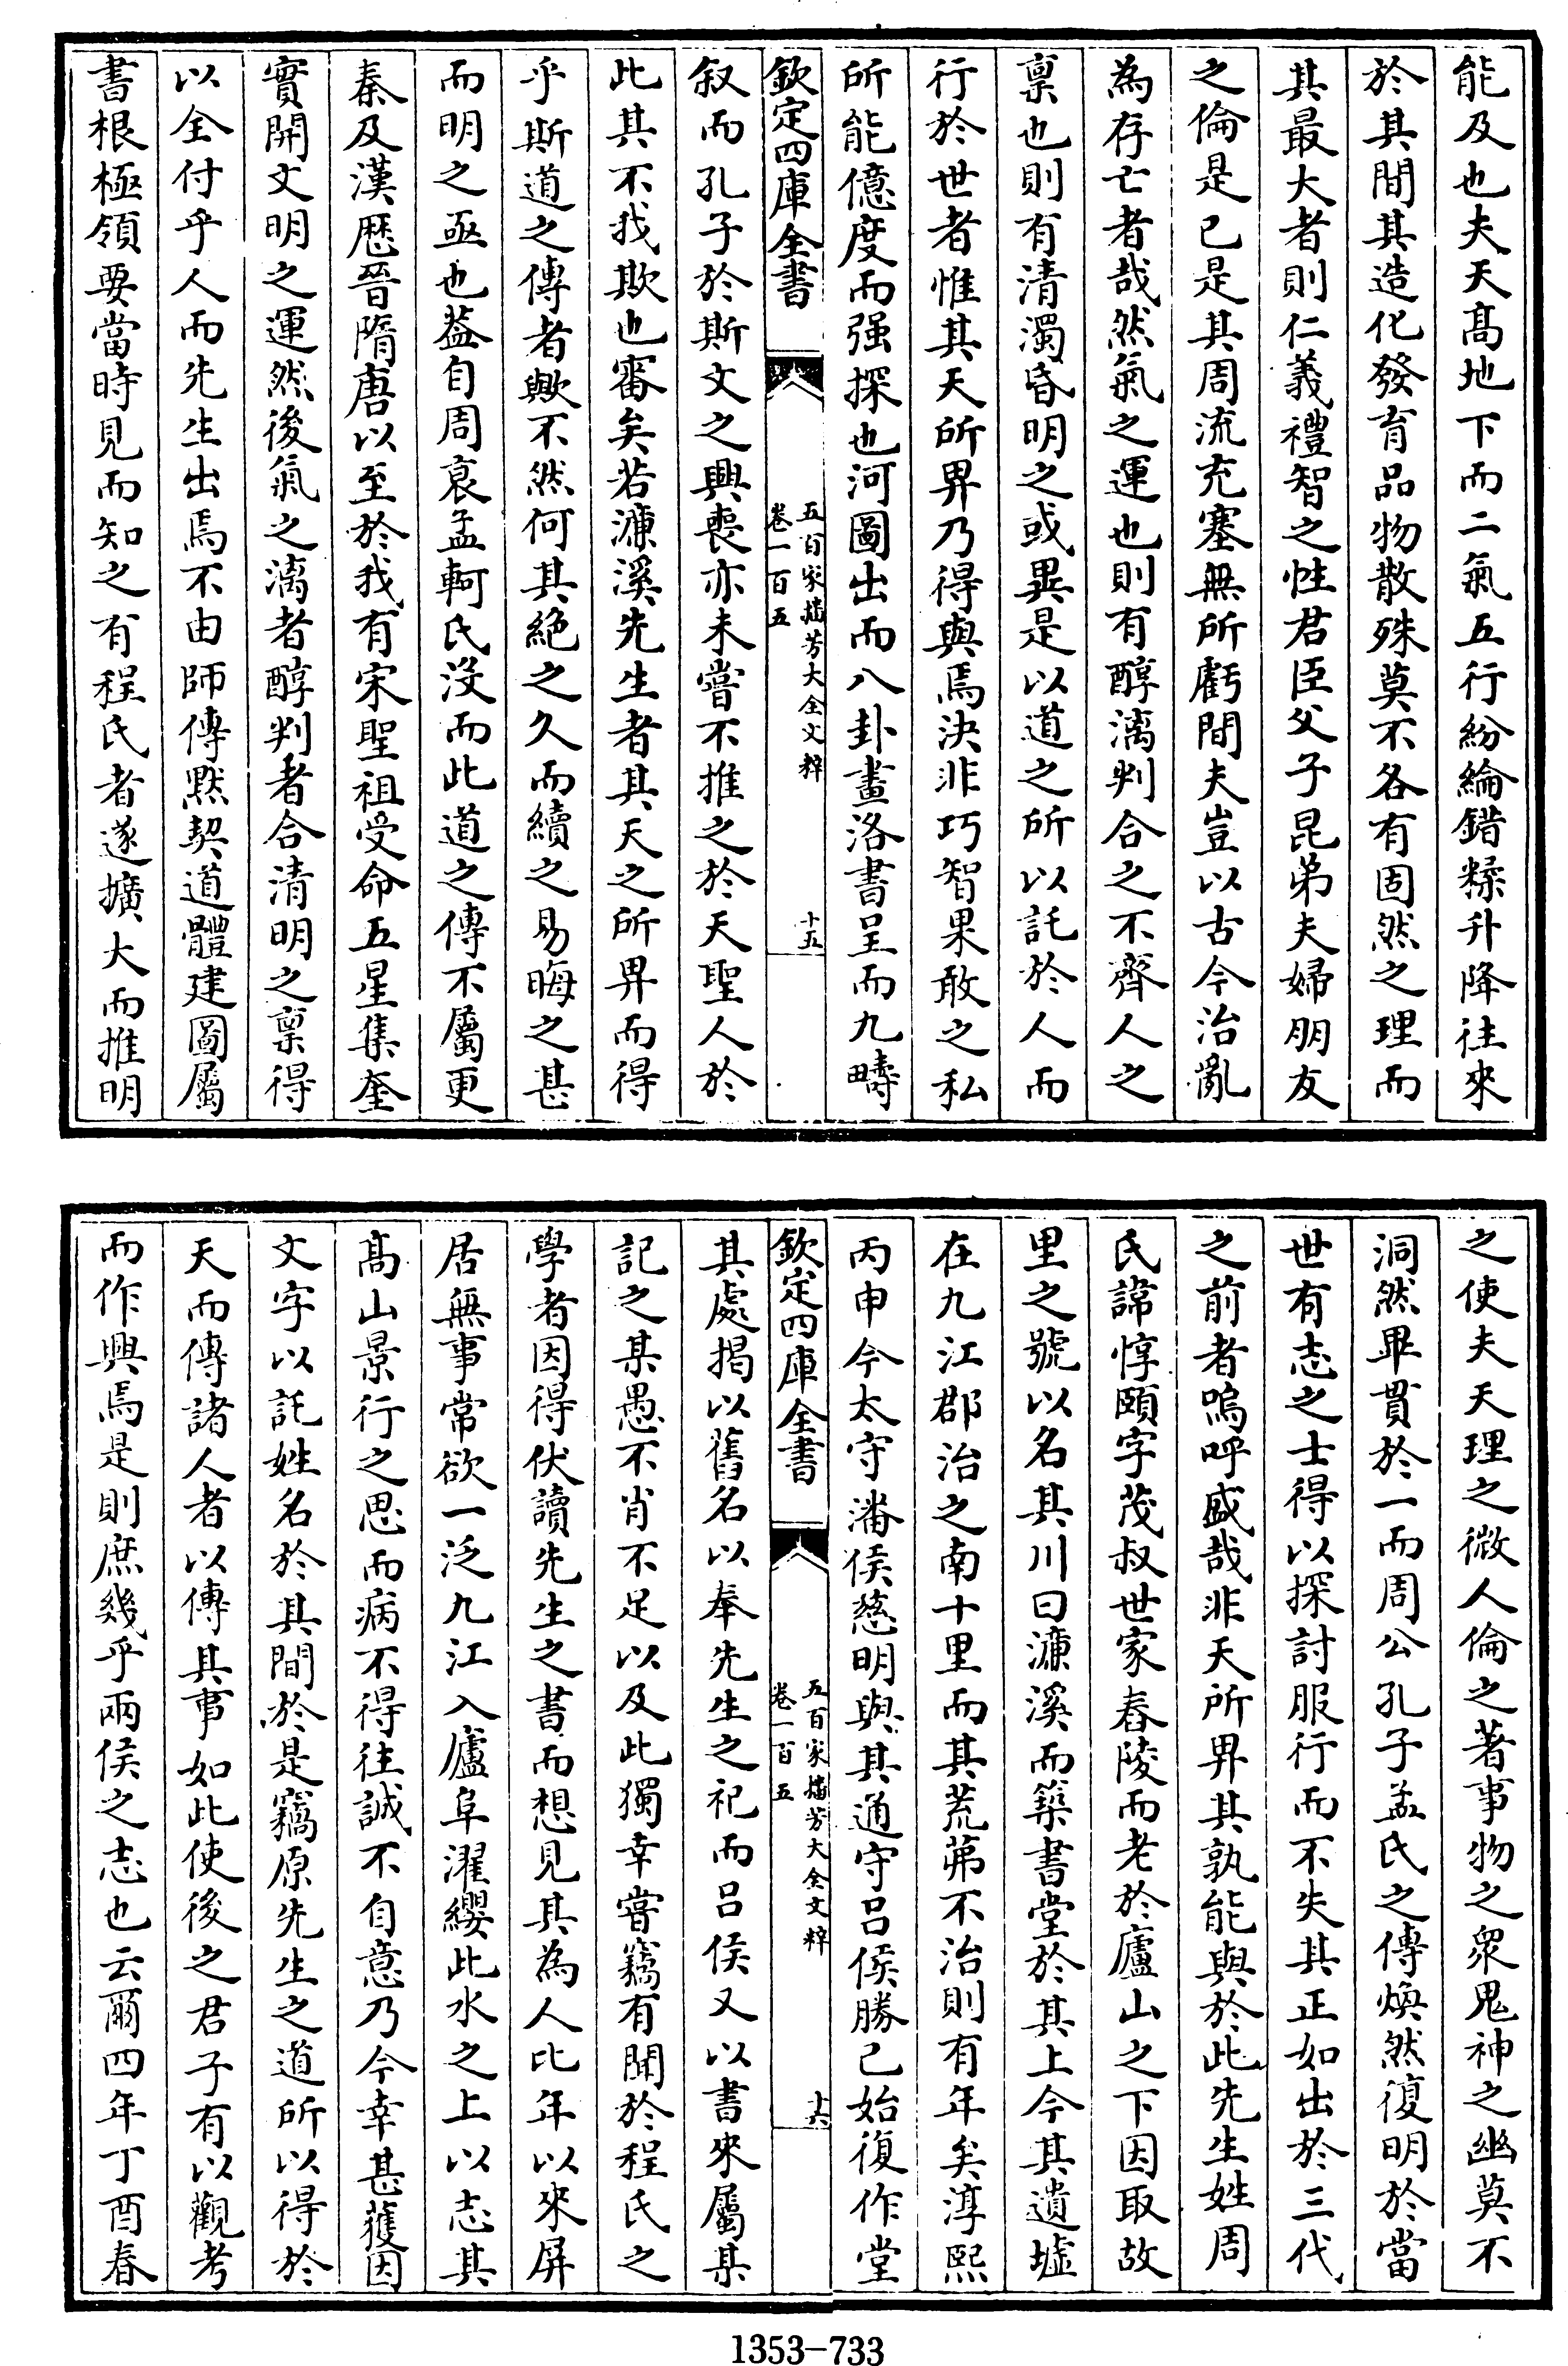 能及也夫天髙地下而二氣五行紛綸錯糅升降往來
於其間其造化發育品物散殊莫不各有固然之理而
其最大者則仁義禮智之性君臣父子昆弟夫婦朋友
之倫是已是其周流充塞無所虧間夫豈以古今治亂
為存亡者哉然氣之運也則有醇漓判合之不齊人之
稟也則有清濁昏明之或異是以道之所以託於人而
行於世者惟其天所畀乃得與焉決非巧智果敢之私
所能億度而强探也河圖出而八卦畫洛書呈而九疇
欽定四庫全書
五百家播芳大全文粹
卷一百五
十五
叙而孔子於斯文之興喪亦未嘗不推之於天聖人於
此其不我欺也審矣若濂溪先生者其天之所畀而得
乎斯道之傳者歟不然何其絶之久而續之易晦之甚
而明之亟也葢自周衰孟軻氏没而此道之傳不屬更
秦及漢歴晉隋唐以至於我有宋聖祖受命五星集奎
實開文明之運然後氣之漓者醇判者合清明之稟得
以全付乎人而先生出焉不由師傳黙契道體建圖屬
書根極領要當時見而知之有程氏者遂擴大而推明
之使夫天理之微人倫之著事物之衆鬼神之幽莫不
洞然畢貫於一而周公孔子孟氏之傳煥然復明於當
世有志之士得以探討服行而不失其正如出於三代
之前者嗚呼盛哉非天所畀其孰能與於此先生姓周
氏諱惇頤字茂叔世家舂陵而老於廬山之下因取故
里之號以名其川曰濂溪而築書堂於其上今其遺墟
在九江郡治之南十里而其荒茀不治則有年矣淳熙
丙申今太守潘侯慈明與其通守吕侯勝已始復作堂
欽定四庫全書
五百家播芳大全文粹
卷一百五
十六
其處揭以舊名以奉先生之祀而吕侯又以書來屬某
記之某愚不肖不足以及此獨幸嘗竊有聞於程氏之
學者因得伏讀先生之書而想見其為人比年以來屏
居無事常欲一泛九江入廬阜濯纓此水之上以志其
髙山景行之思而病不得往誠不自意乃今幸甚獲因
文字以託姓名於其間於是竊原先生之道所以得於
天而傳諸人者以傳其事如此使後之君子有以觀考
而作興焉是則庶幾乎兩侯之志也云爾四年丁酉春
1353-733